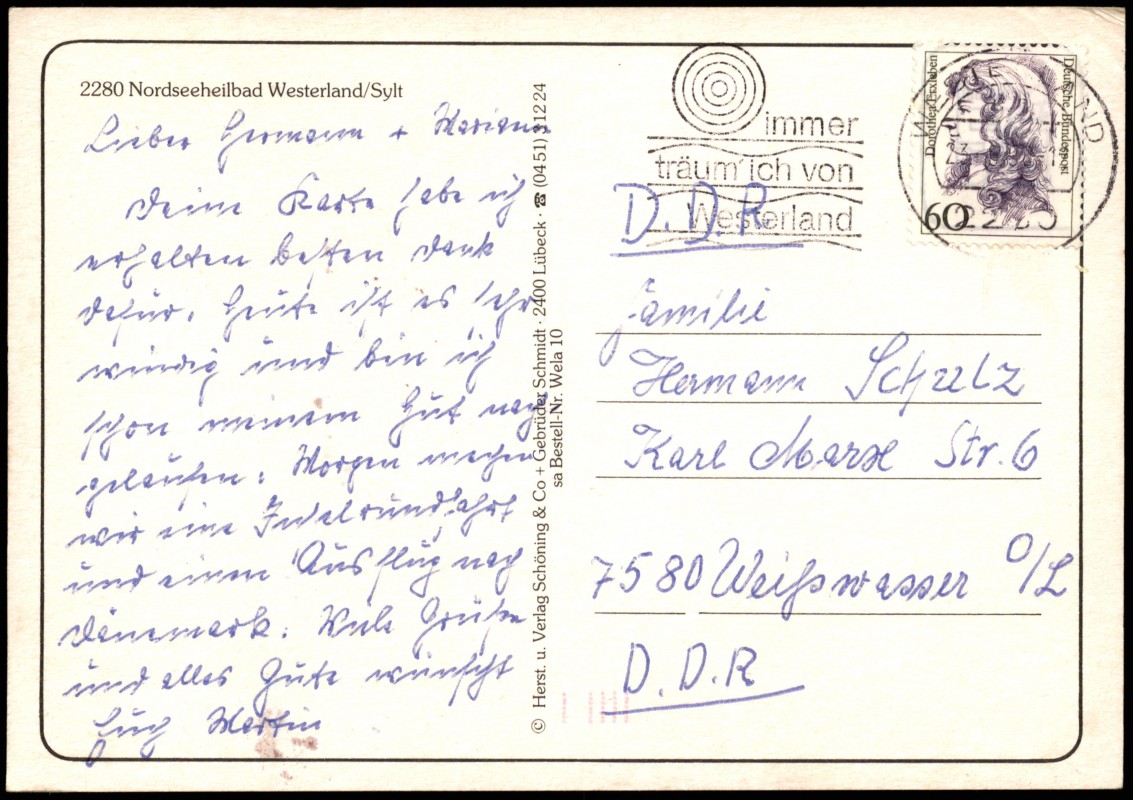 2280 Nordseeheilbad Westerland/Sylt
Lieber Hermann + Mariann
deine Karte habe ich
erhalten besten Dank
dafür. Heute ist es sehr
windig und bin ich
schon meinem Hut nach
gelaufen. Morgen machen
wir eine Inselrundfahrt
und einen Ausflug nach
Dänemark. Viele Grüße
und alles Gute wünscht
Euch Martin
© Herst. u. Verlag Schöning & Co + Gebrüder Schmidt · 2400 Lübeck · ☎ (0451) 31224
sa Bestell-Nr. Wela 10
immer
träum' ich von
Westerland
Dorothea Erxleben
Deutsche Bundespost
60
D.D.R.
Familie
Hermann Schulz
Karl Marx Str. 6
7580 Weißwasser O/L
D.D.R